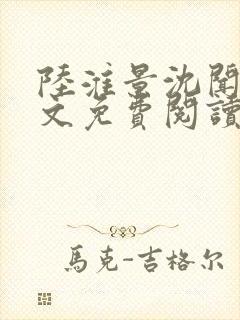 陸淮景沈聞
文免費閱讀
馬克-吉格尔